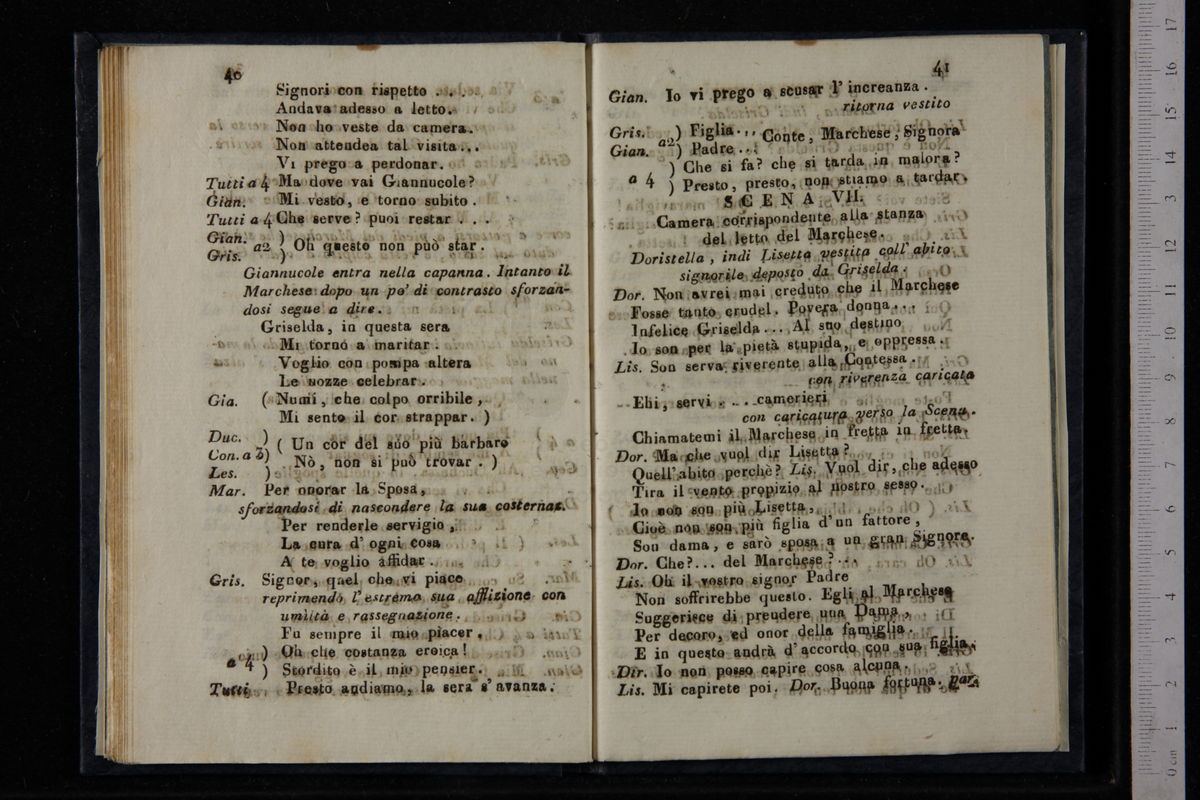 40
Signori con rispetto . . .
Andava adesso a letto.
Non ho veste da camera.
Non attendea tal visita...
Vi prego a perdonar.
Tutti a 4 Ma dove vai Giannucole?
Gian. Mi vesto, e torno subito.
Tutti a 4 Che serve? puoi restar . . .
Gian. )
a2 ) Oh questo non può star.
Gris.
Giannucole entra nella capanna. Intanto il
Marchese dopo un po' di contrasto sforzan-
dosi segue a dire.
Griselda, in questa sera
Mi torno a maritar.
Voglio con pompa altera
Le nozze celebrar.
Gia. ( Numi, che colpo orribile,
Mi sento il cor strappar. )
Duc. )
Con. a 3) ( Un cor del suo più barbaro
Nò, non si può trovar. )
Les. )
Mar. Per onorar la Sposa,
sforzandosi di nascondere la sua costernaz.
Per renderle servigio,
La cura d' ogni cosa
A te voglio affidar.
Gris. Signor, quel che vi piace
reprimendo l' estrema sua afflizione con
umiltà e rassegnazione.
Fu sempre il mio piacer.
) Oh che costanza eroica!
a 4 ) Stordito è il mio pensier.
Tutti Presto andiamo, la sera s' avanza.
41
Gian. Io vi prego a scusar l' increanza.
ritorna vestito
Gris. ) Figlia... Conte, Marchese, Signora
a2
Gian. ) Padre...
) Che si fa? che si tarda in malora?
a 4 ) Presto, presto, non stiamo a tardar.
SCENA VII.
Camera corrispondente alla stanza
del letto del Marchese.
Doristella, indi Lisetta vestita coll' abito
signorile deposto da Griselda.
Dor. Non avrei mai creduto che il Marchese
Fosse tanto crudel. Povera donna...
Infelice Griselda... Al suo destino
Io son per la pietà stupida, e oppressa.
Lis. Son serva riverente alla Contessa.
con riverenza caricata
Ehi, servi . . . camerieri
con caricatura verso la Scena.
Chiamatemi il Marchese in fretta in fretta.
Dor. Ma che vuol dir Lisetta?
Quell' abito perchè? Lis. Vuol dir, che adesso
Tira il vento propizio al nostro sesso.
Io non son più Lisetta,
Cioè non son più figlia d' un fattore,
Son dama, e sarò sposa a un gran Signore.
Dor. Che?... del Marchese?...
Lis. Oh il vostro signor Padre
Non soffrirebbe questo. Egli al Marchese
Suggerisce di prendere una Dama,
Per decoro, ed onor della famiglia.
E in questo andrà d' accordo con sua figlia.
Dir. Io non posso capire cosa alcuna.
Lis. Mi capirete poi. Dor. Buona fortuna. par.
0 cm 1 2 3 4 5 6 7 8 9 10 11 12 13 14 15 16 17